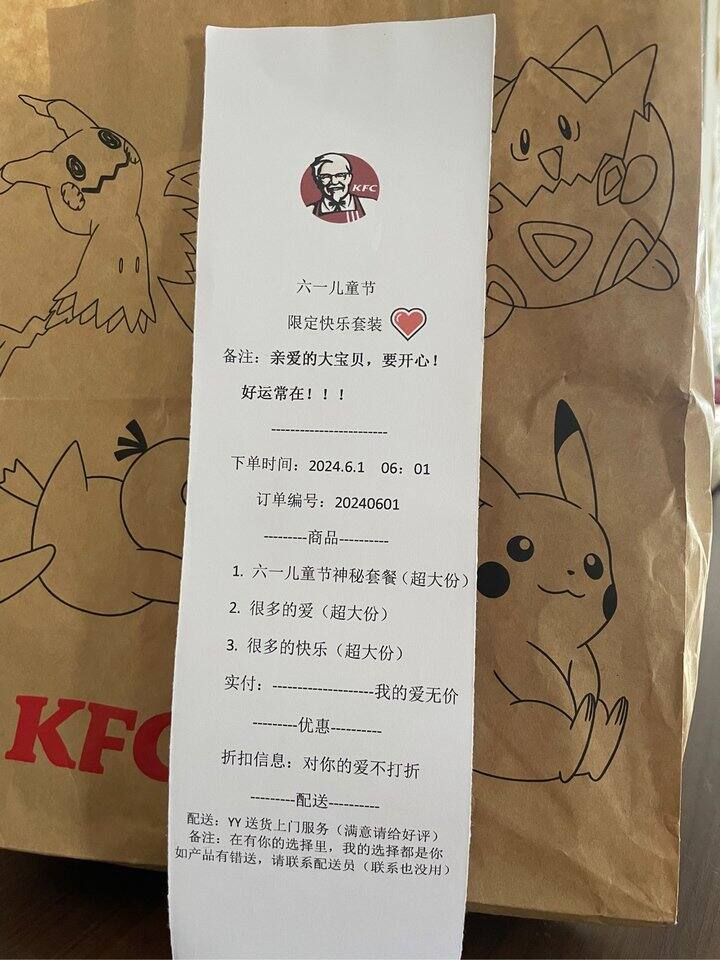 KFC
六一儿童节
限定快乐套装
备注：亲爱的大宝贝，要开心！
好运常在！！！
------------------------
下单时间：2024.6.1 06：01
订单编号：20240601
---------商品----------
1. 六一儿童节神秘套餐（超大份）
2. 很多的爱（超大份）
3. 很多的快乐（超大份）
实付：---------------------我的爱无价
---------优惠----------
折扣信息：对你的爱不打折
---------配送----------
配送：YY 送货上门服务（满意请给好评）
备注：在有你的选择里，我的选择都是你
如产品有错送，请联系配送员（联系也没用）
KFC